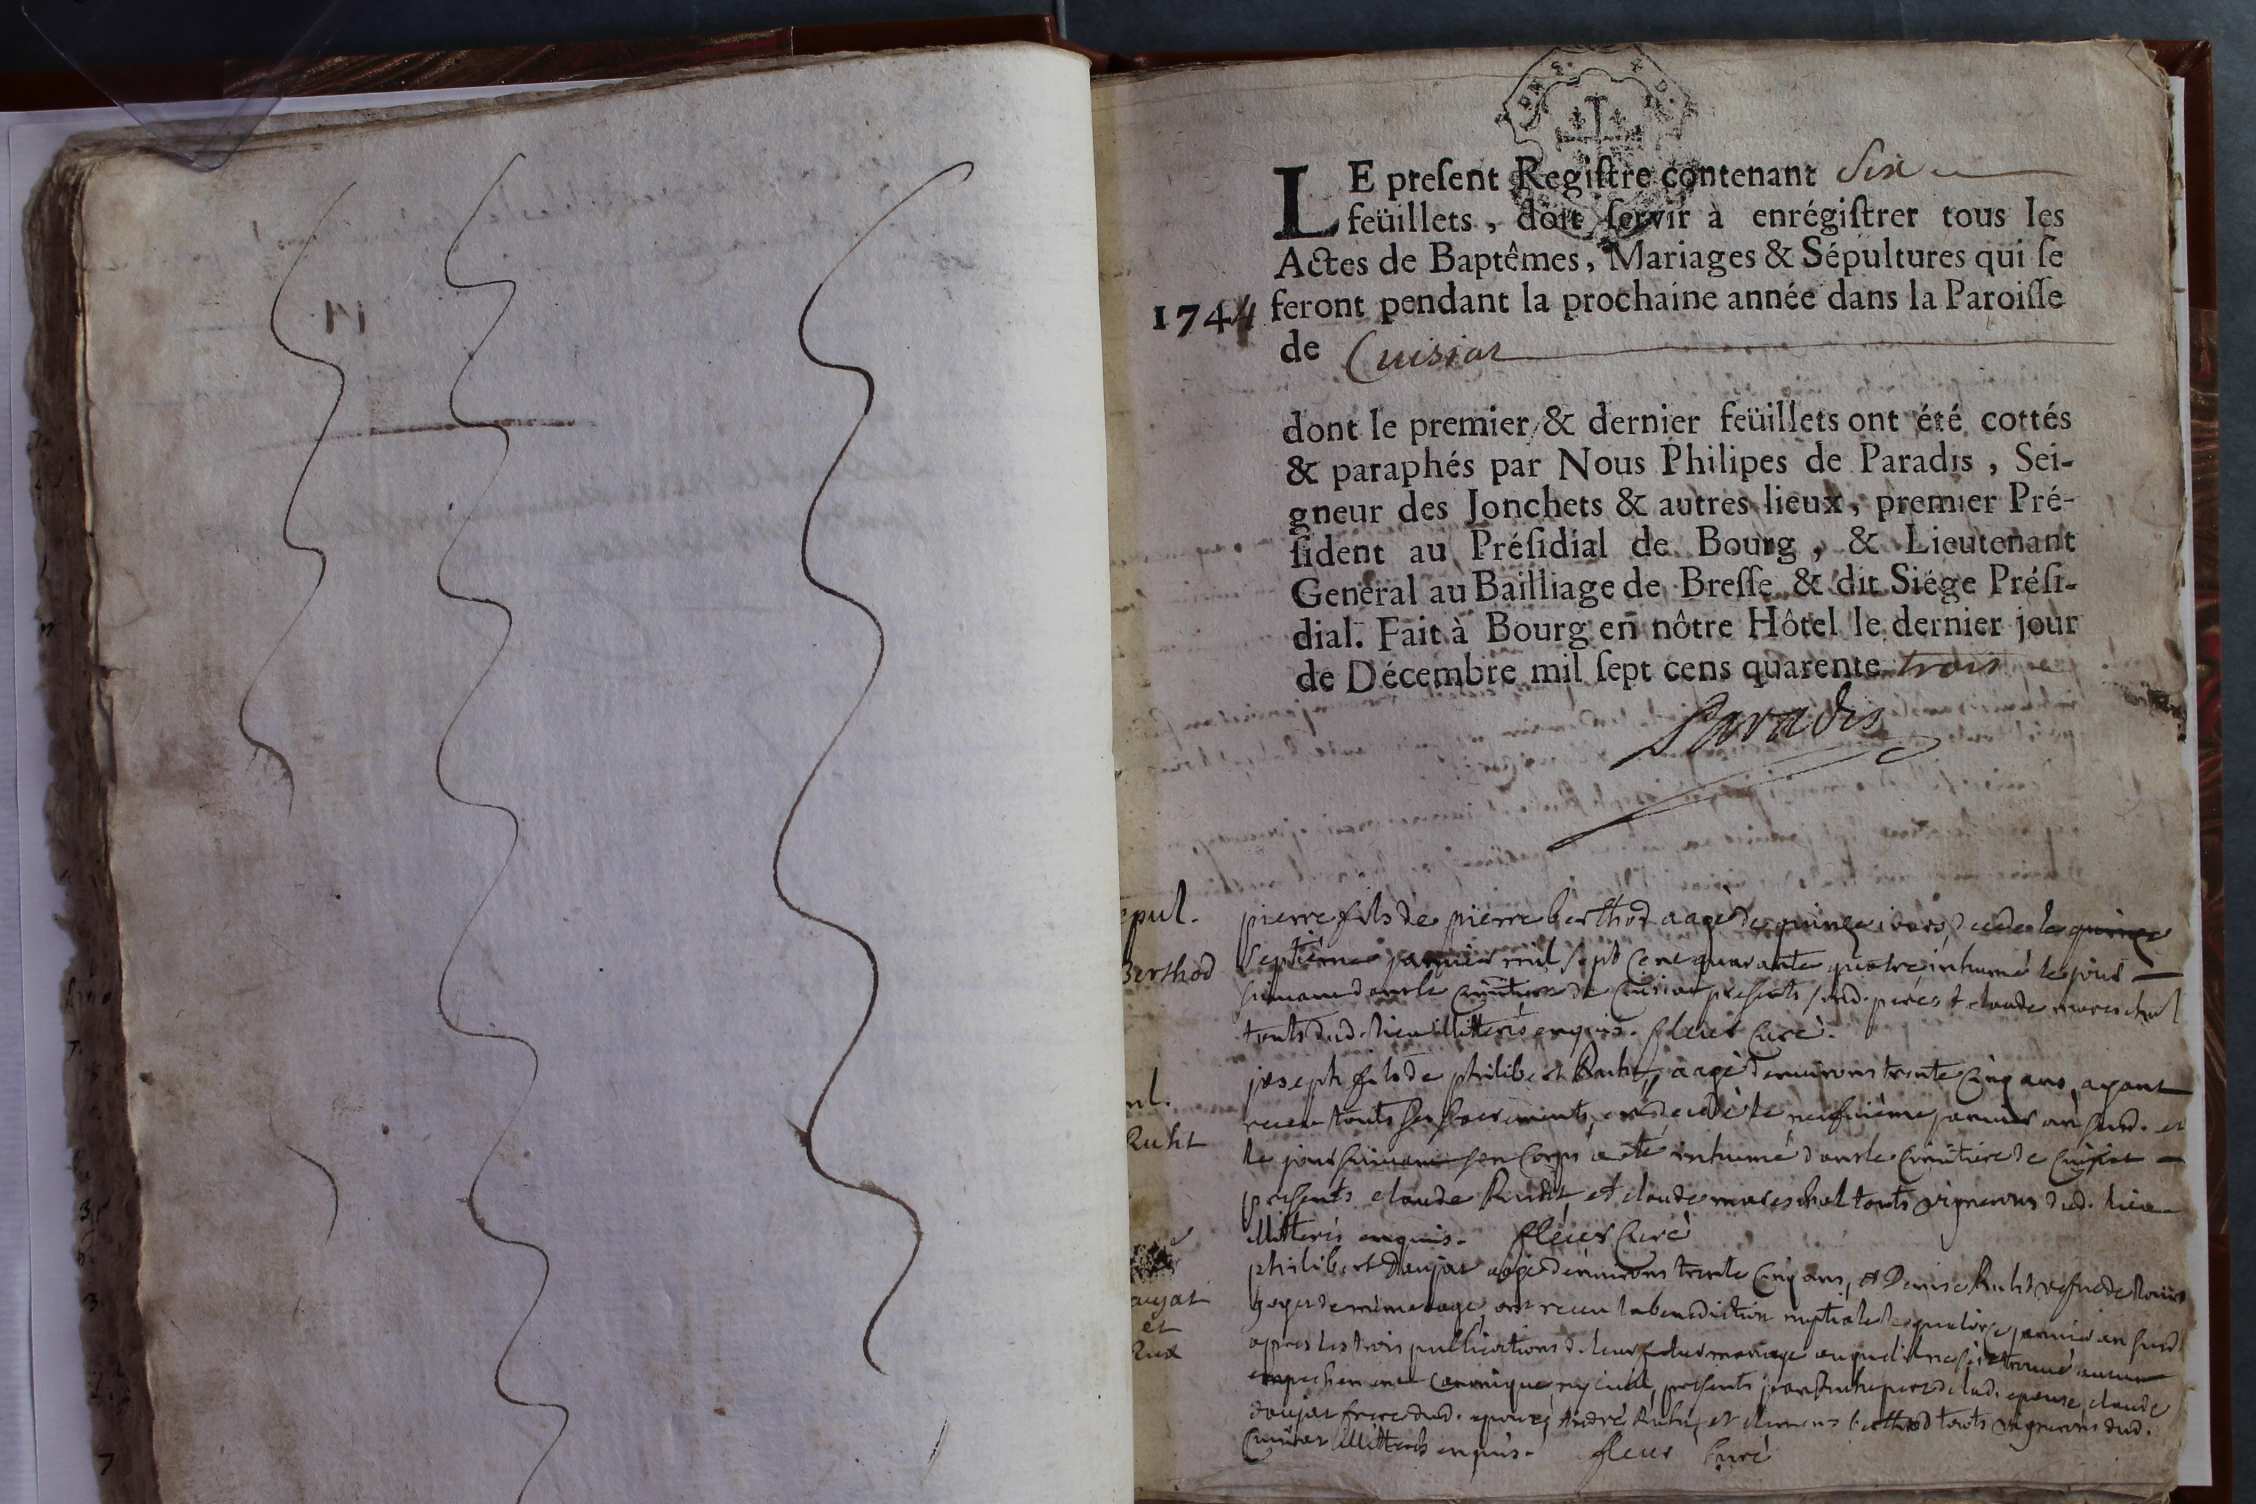 LE preſent Regiſtre contenant Six
feüillets, doit ſervir à enrégiſtrer tous les
Actes de Baptêmes, Mariages & Sépultures qui ſe
1744 feront pendant la prochaine année dans la Paroiſſe
de Cuisiat
dont le premier & dernier feüillets ont été cottés
& paraphés par Nous Philipes de Paradis, Sei-
gneur des Jonchets & autres lieux, premier Pré-
ſident au Préſidial de Bourg, & Lieutenant
General au Bailliage de Breſſe & dit Siége Préſi-
dial. Fait à Bourg en nôtre Hôtel le dernier jour
de Décembre mil ſept cens quarente trois
Paradis
epul.
Berthod
pierre fils de pierre berthod aagé de quinze decedé le quinze
septiéme janvier mil sept cent quarante quatre inhumé le jour
suivant dans le cimitiere de Cuisiat presents sud. pere et claude mareschal
touts dud. lieu illitterés enquis. fleur Curé.
Ruht
joseph fils de philibert Ruht, aagé denvirons trente Cinq ans, ayant
receu touts ses sacrements, est decedé le neufviéme janvier an sud. et
le jour suivant son Corps a eté inhumé dans le Cimitiere de Cuisiat
presents claude Ruht, et claude mareschal touts vignerons dud. lieu
illitterés enquis. fleur Curé
aujat
et
philibert daujat aagé denvirons trente Cinq ans, et Denise Ruht vefve de
de méme aage, ont receu la benediction nuptiale le quatorze janvier an sud.
apres les trois publications de leur futur mariage auquel il ne s'est trouvé aucun
empechement Canonique ny civil, presents jean Ruht pere de lad. epouse, claude
daujat frere dud. epoux, André Ruht, et berthod touts vignerons dud.
Cuisiat illitterés enquis. fleur Curé